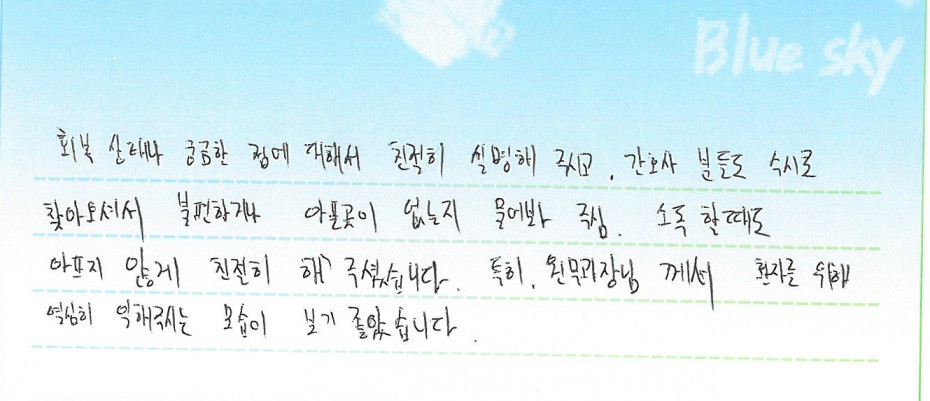 Blue sky
회복 상태나 궁금한 점에 대해서 친절히 설명해 주시고, 간호사 분들도 수시로
찾아오셔서 불편하거나 아픈곳이 없는지 물어봐 주심. 소독 할때도
아프지 않게 친절히 해 주셨습니다. 특히, 원무과장님 께서 환자를 위해
열심히 일해주시는 모습이 보기 좋았습니다.